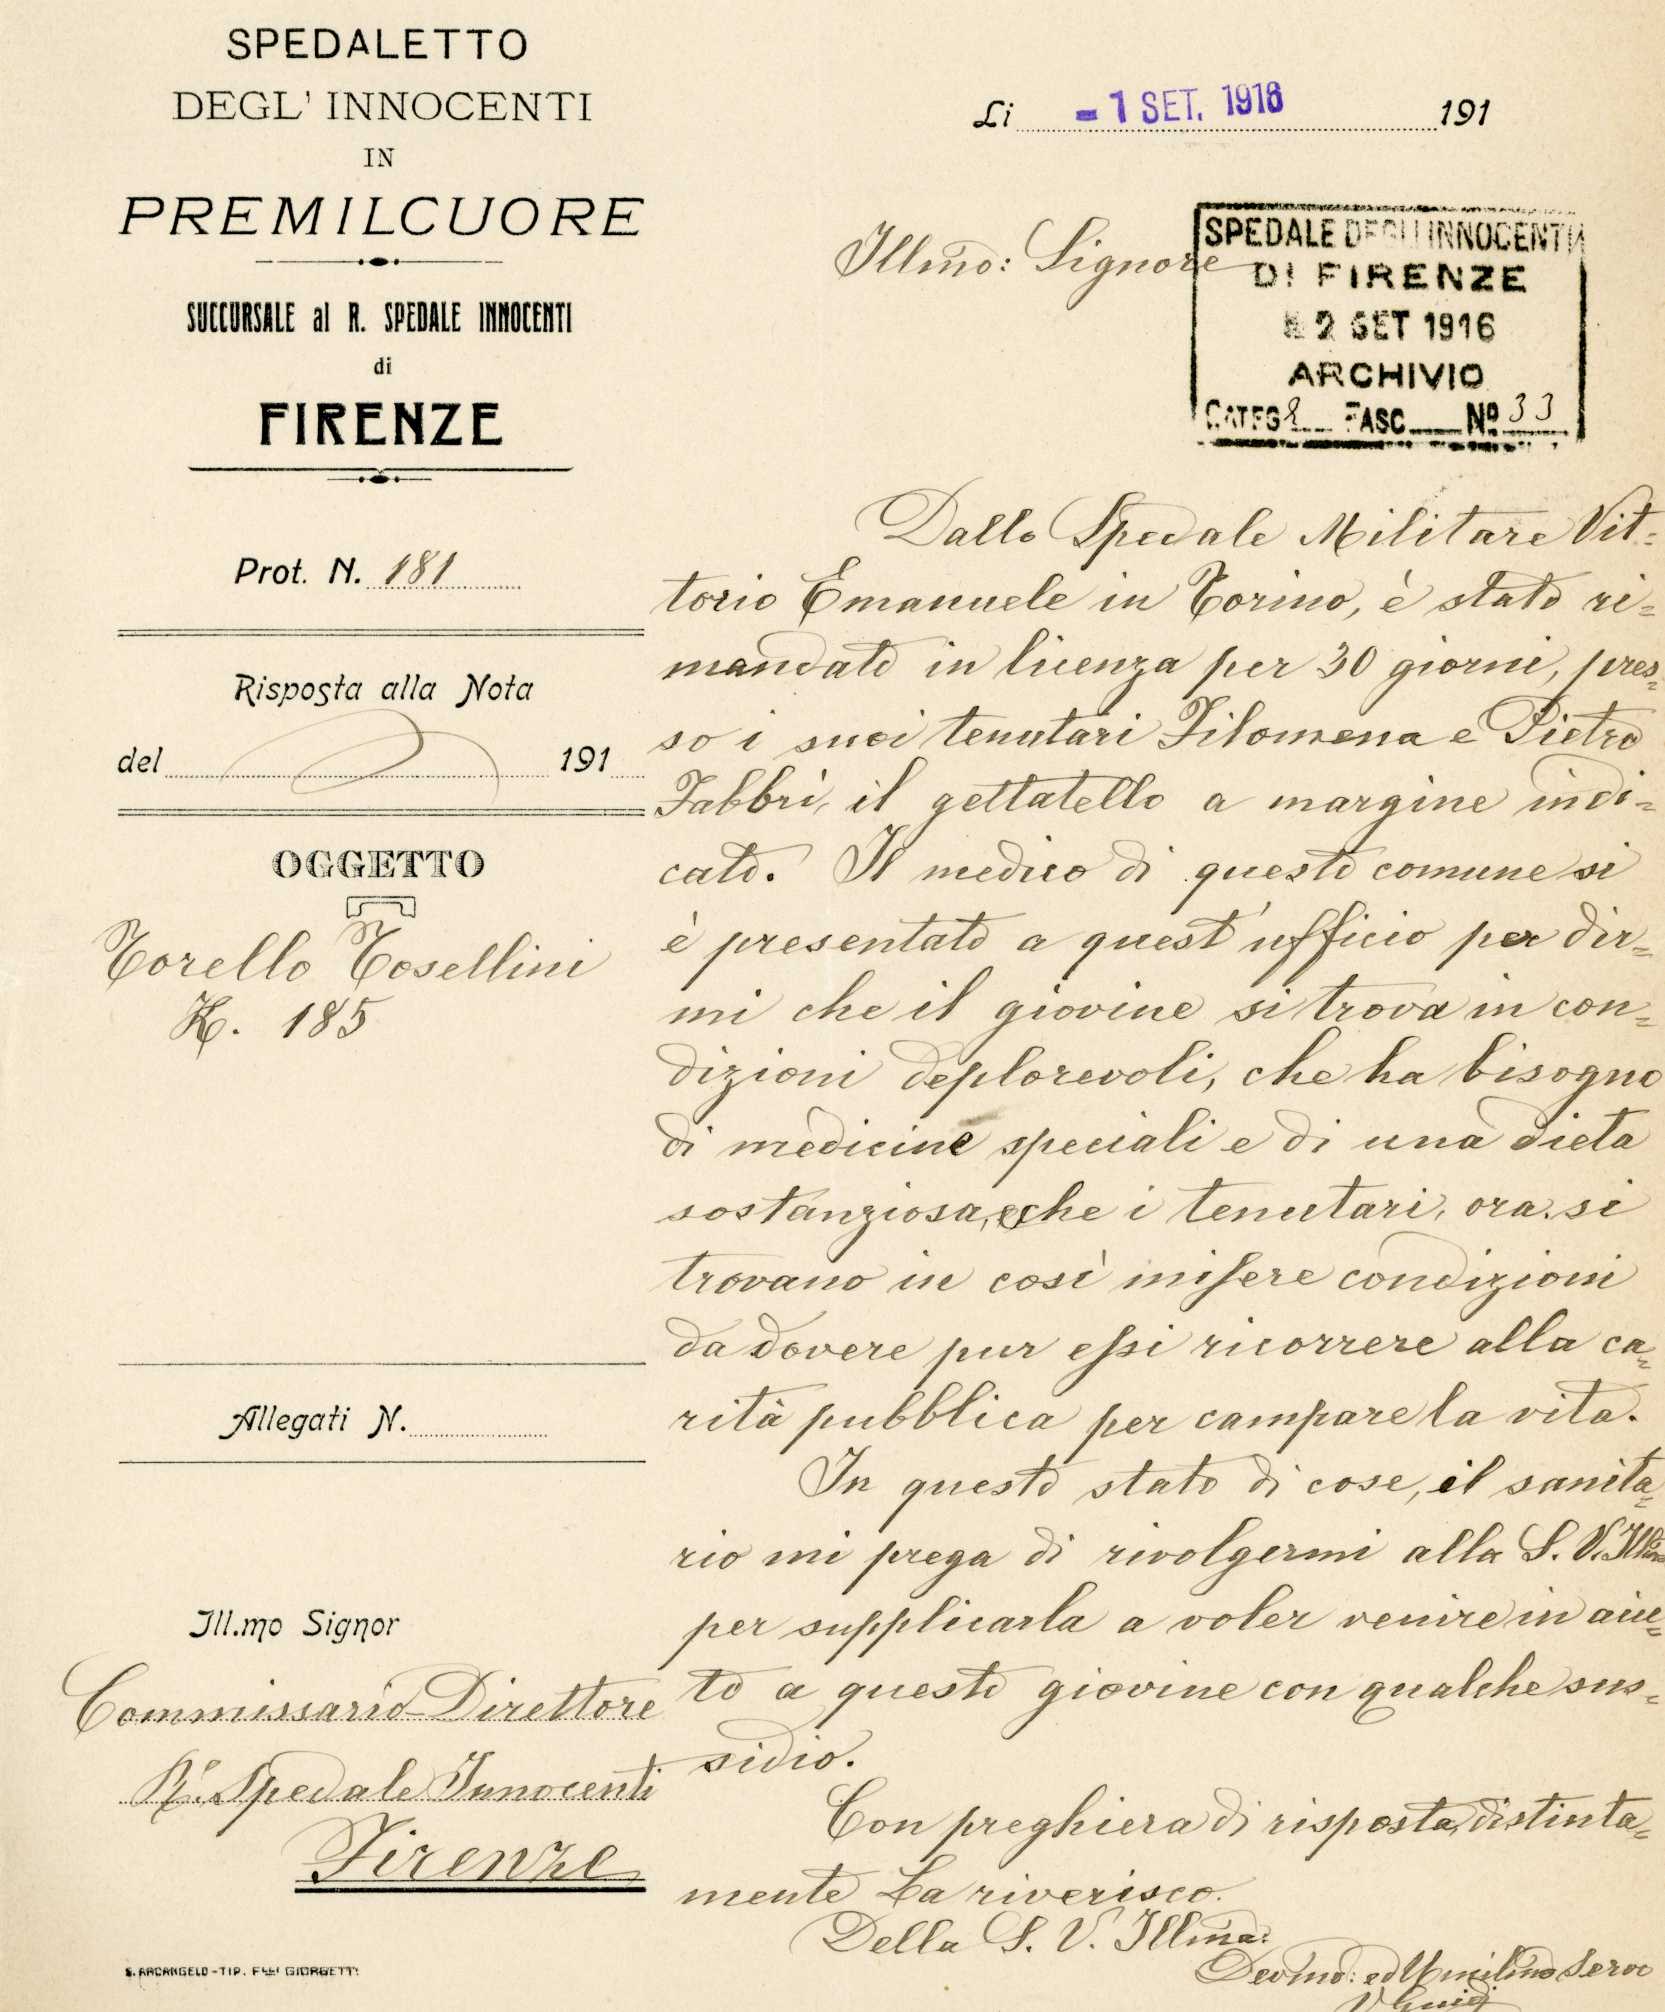 SPEDALETTO
DEGL' INNOCENTI
IN
PREMILCUORE
SUCCURSALE al R. SPEDALE INNOCENTI
di
FIRENZE
Prot. N. 181
Risposta alla Nota
del 191
OGGETTO
Torello Tosellini
K. 185
Allegati N.
Ill.mo Signor
Commissario-Direttore
R.o Spedale Innocenti
Firenze
S. ARCANGELO - TIP. F.LLI GIORGETTI
Li - 1 SET. 1916 191
Illmo: Signore
SPEDALE DEGLI INNOCENTI
DI FIRENZE
2 SET 1916
ARCHIVIO
CATEG 8 FASC Nº 33
Dallo Spedale Militare Vit=
torio Emanuele in Torino, è stato ri=
mandato in licenza per 30 giorni, pres=
so i suoi tenutari Filomena e Pietro
Fabbri, il gettatello a margine indi=
cato. Il medico di questo comune si
è presentato a quest'ufficio per dir=
mi che il giovine si trova in con=
dizioni deplorevoli, che ha bisogno
di medicine speciali e di una dieta
sostanziosa, e che i tenutari, ora si
trovano in così misere condizioni
da dovere pur essi ricorrere alla ca=
rità pubblica per campare la vita.
In questo stato di cose, il sanita=
rio mi prega di rivolgermi alla S. V. Illma
per supplicarla a voler venire in aiu=
to a questo giovine con qualche sus=
sidio.
Con preghiera di risposta, distinta=
mente La riverisco.
Della S. V. Illma:
Devmo: ed Umilmo Servo